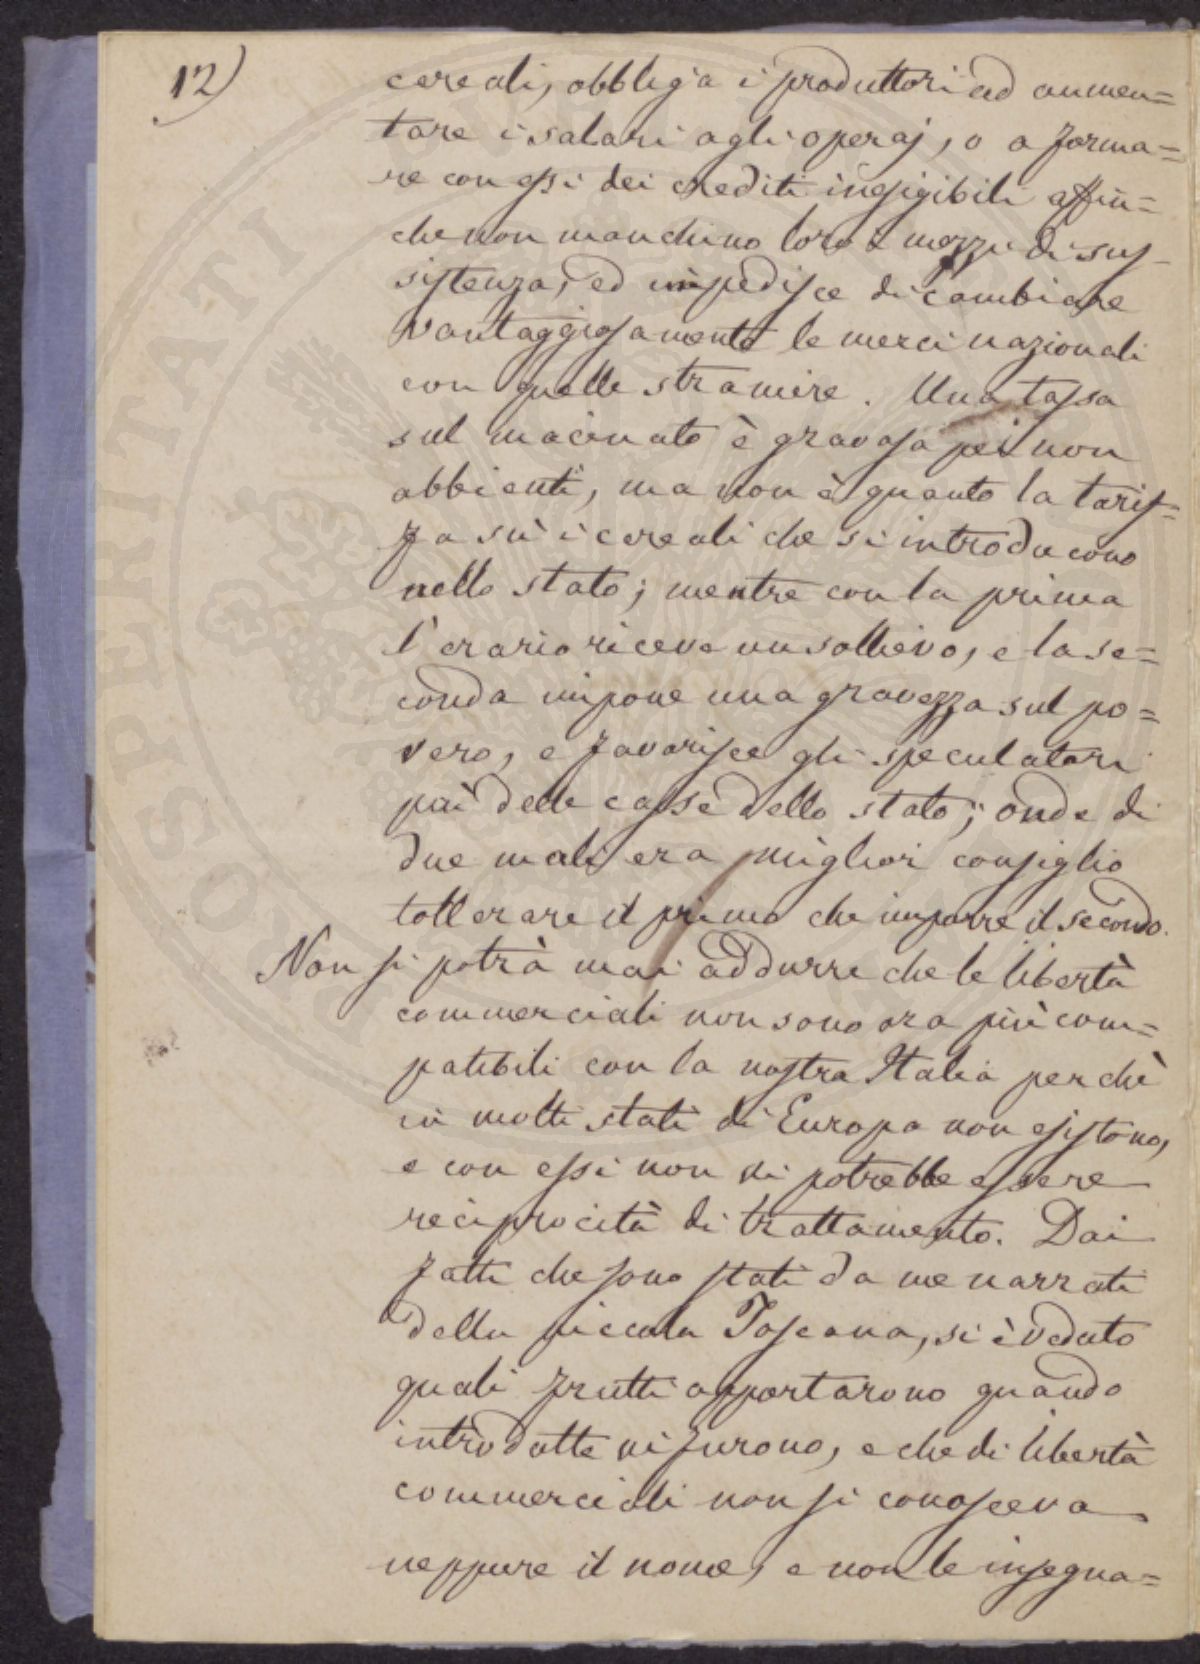 12)
cereali, obbliga i produttori ad aumen=
tare i salari agli operaj, o a forma=
re con essi dei crediti inesigibili affin=
che non manchino loro i mezzi di sus=
sistenza, ed impedisce di cambiare
vantaggiosamente le merci nazionali
con quelle straniere. Una tassa
sul macinato è gravosa pei non
abbienti, ma non è quanto la tarif=
fa sù i cereali che si introducono
nello stato; mentre con la prima
l'erario riceve un sollievo, e la se=
conda impone una gravezza sul po=
vero, e favorisce gli speculatori
più delle casse dello stato; onde di
due mali era miglior consiglio
tollerare il primo che imporre il secondo.
Non si potrà mai addurre che le libertà
commerciali non sono ora più com=
patibili con la nostra Italia perchè
in molti stati di Europa non esistono,
e con essi non vi potrebbe essere
reciprocità di trattamento. Dai
fatti che sono stati da me narrati
della piccola Toscana, si è veduto
quali frutti apportarono quando
introdotte vi furono, e che di libertà
commerciali non si conosceva
neppure il nome, e non le insegna=
PROSPERITATI